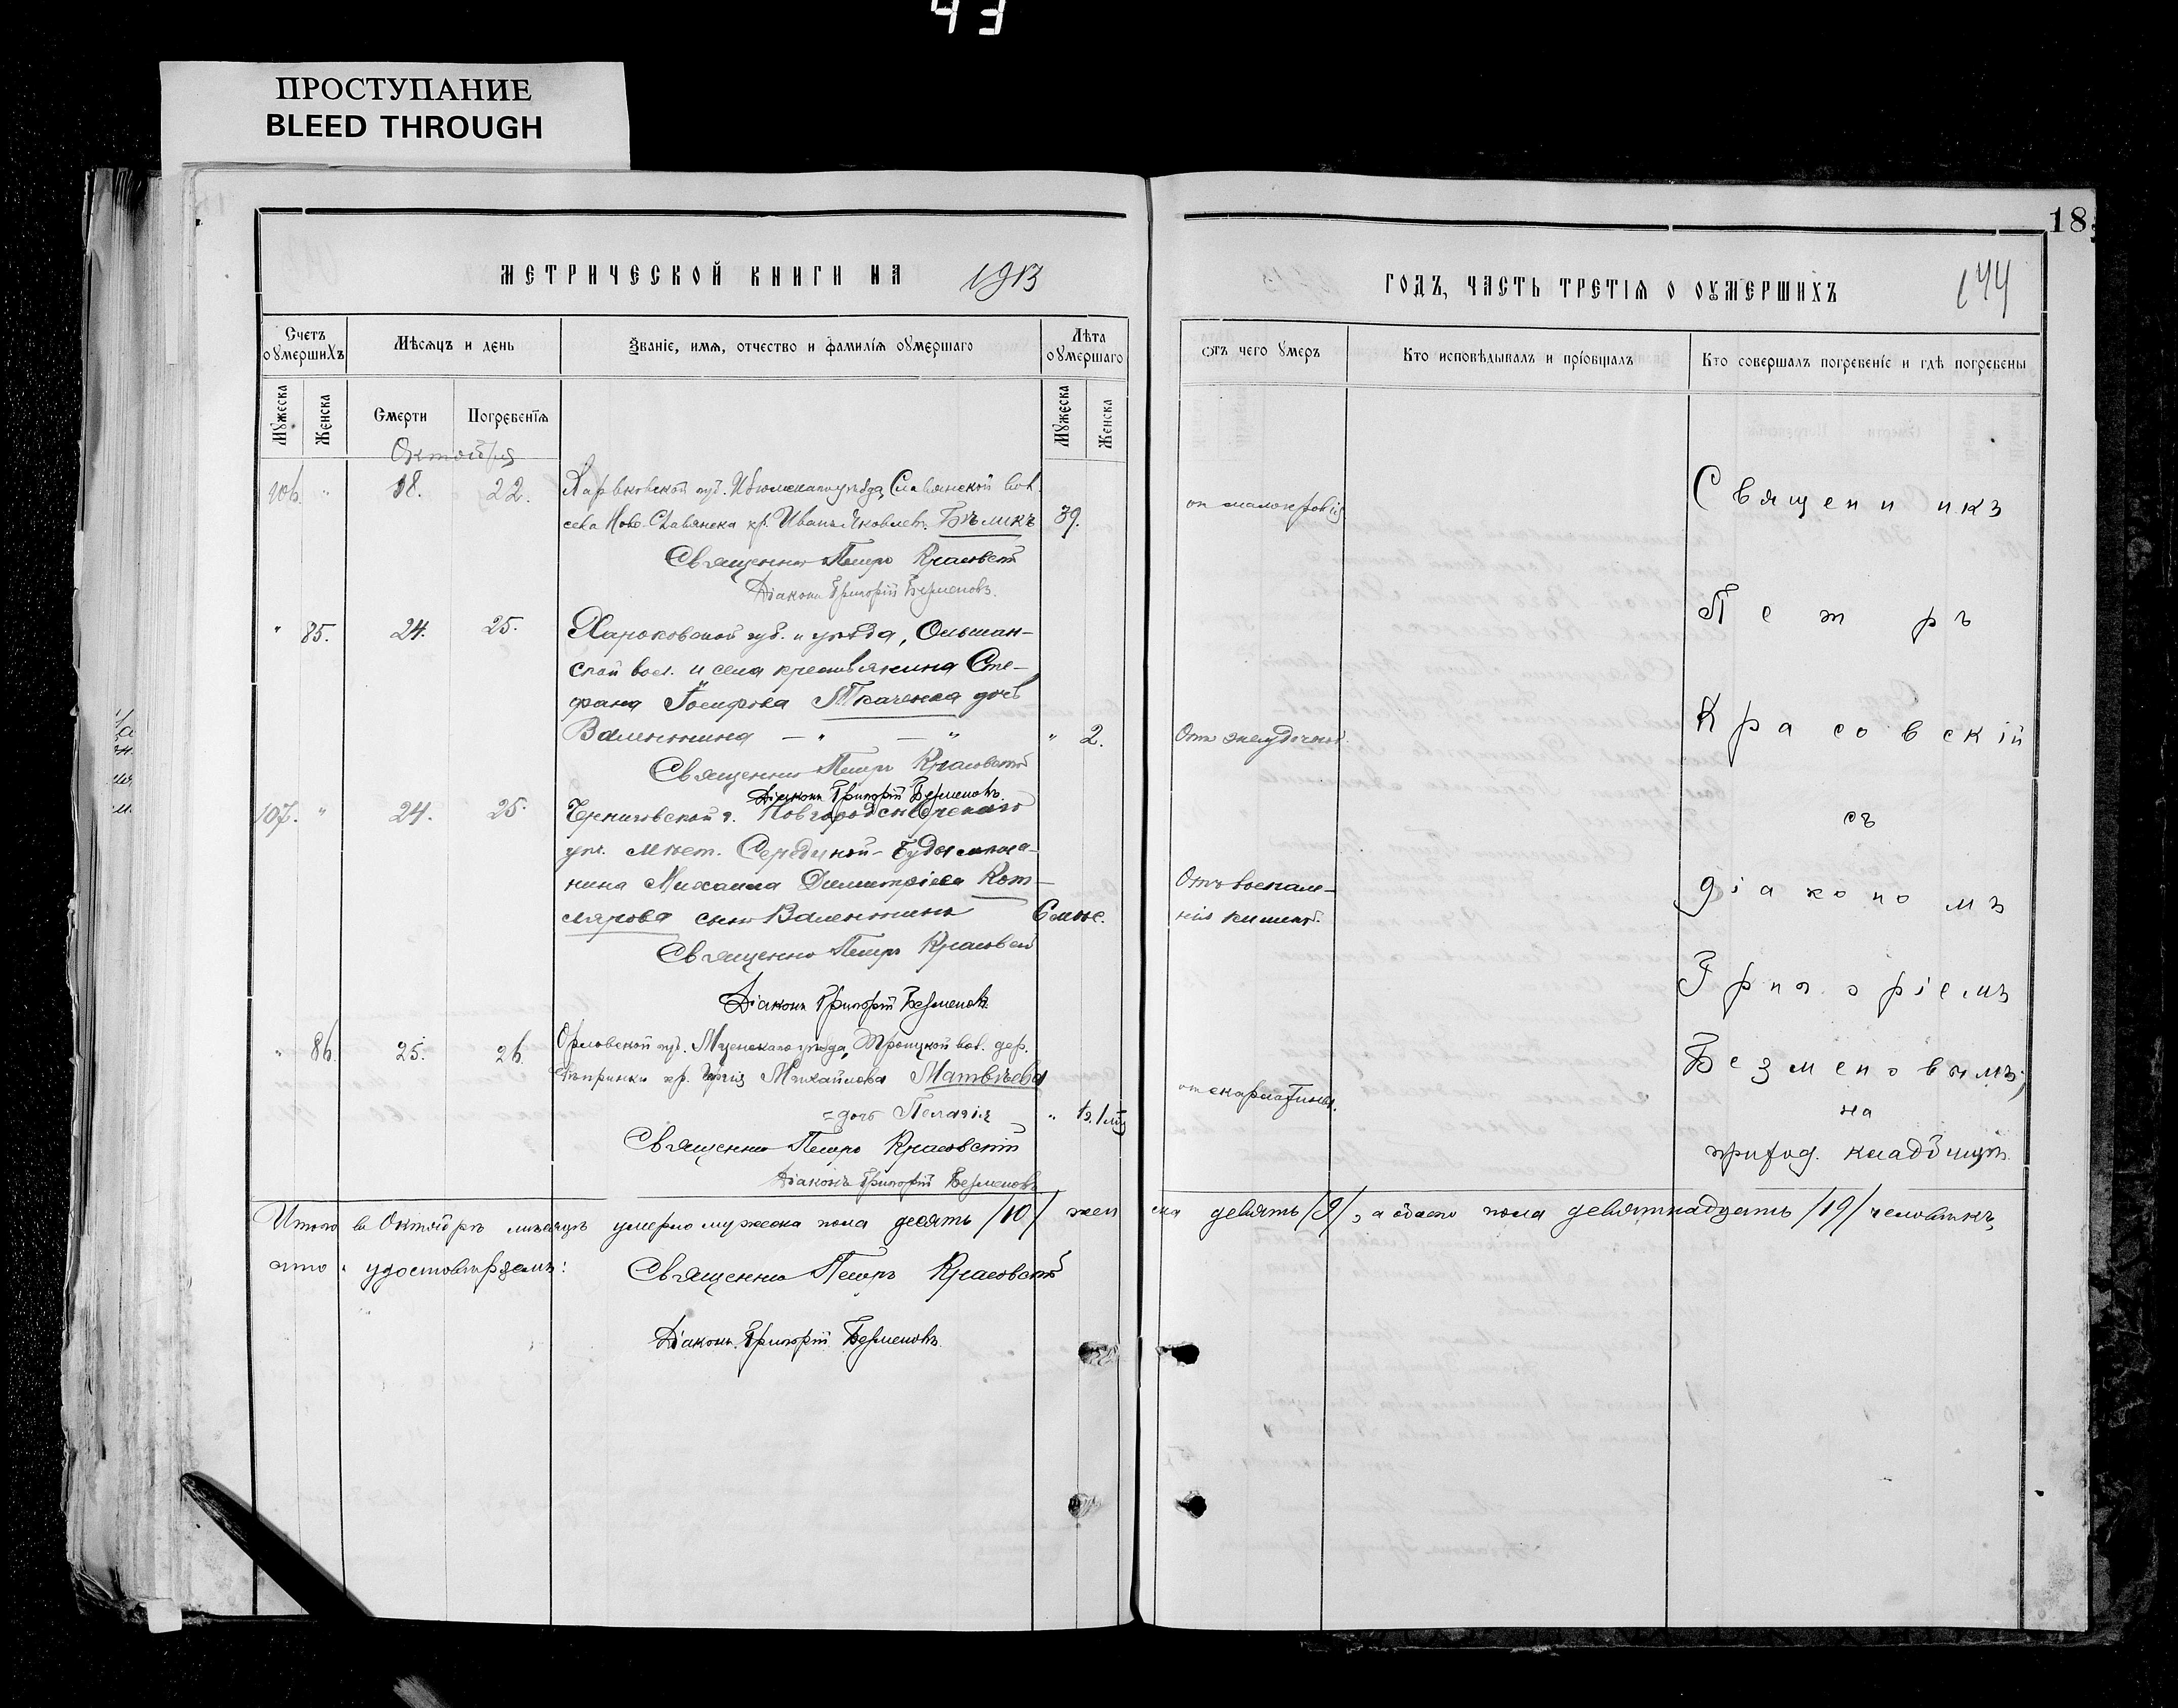 43
ПРОСТУПАНИЕ
BLEED THROUGH
18
МЕТРИЧЕСКОЙ КНИГИ НА 1913
ГОДЪ, ЧАСТЬ ТРЕТІЯ О ОУМЕРШИХЪ
144
Счетъ оумершихъ
Мѣсяцъ и день
Званіе, имя, отчество и фамилія оумершаго
Лѣта оумершаго
Отъ чего умеръ
Кто исповѣдывалъ и пріобщалъ
Кто совершалъ погребеніе и гдѣ погребены
Мужеска
Женска
Смерти
Погребенія
Мужеска
Женска
Октября
106. " 18. 22. Харьковской губ. Изюмскаго уѣзда, Славянской вол.
села Ново-Славянска кр. Иванъ Яковлев. Бѣликъ 39. от малокровія
Священникъ Петръ Красовскій
Діаконъ Григорій Безменовъ.
" 85. 24. 25. Харьковской губ. и уѣзда, Ольшан-
ской вол. и села крестьянина Сте-
фана Іосифова Ткаченка дочь
Валентина — " — " " 2. Отъ желудочной.
Священникъ Петръ Красовскій
Діаконъ Григорій Безменовъ.
107. " 24. 25. Черниговской г. Новгородсѣверскаго
уѣз. мѣст. Середи­ной-Буды мѣща-
нина Михаила Димитріева Кот-
лярова сынъ Валентинъ 6 мѣс. Отъ воспале-
нія кишекъ.
Священникъ Петръ Красовскій
Діаконъ Григорій Безменовъ.
" 86. 25. 26. Орловской губ. Мценскаго уѣзда, Троицкой вол. дер.
кр. Михайлова Матвѣева
дочь Пелагія " от скарлатины.
Священникъ Петръ Красовскій
Діаконъ Григорій Безменовъ
Священникъ
Петръ
Красовскій
съ
діакономъ
Григоріемъ
Безменовымъ,
на
приход. кладбищѣ.
Итого въ Октябрѣ мѣсяцѣ умерло мужеска пола десять /10/ женска девять /9/, а обоего пола девятнадцать /19/ человѣкъ,
что удостовѣряемъ:
Священникъ Петръ Красовскій
Діаконъ Григорій Безменовъ.